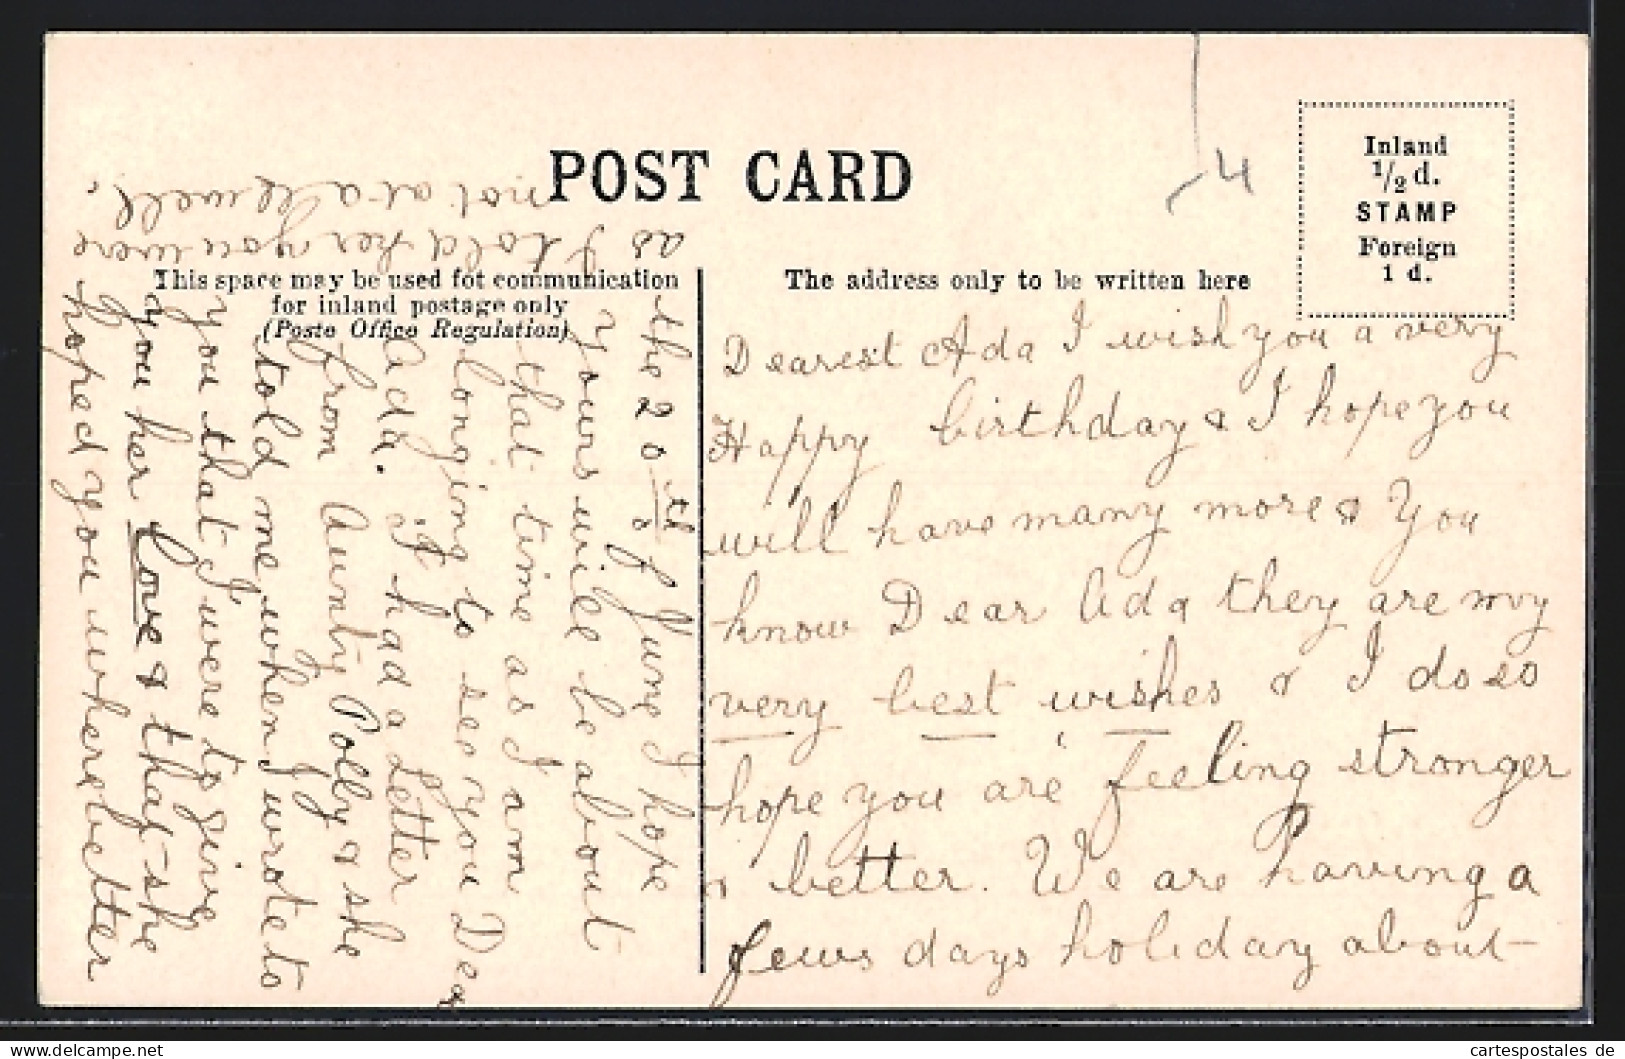 POST CARD
4
Inland
1/2 d.
STAMP
Foreign
1 d.
This space may be used fot communication
for inland postage only
(Poste Office Regulation)
The address only to be written here
Dearest Ada I wish you a very
Happy birthday & I hope you
will have many more & You
know Dear Ada they are my
very best wishes & I do so
hope you are feeling stronger
& better. We are having a
fews days holiday about
the 20th of June I hope
yours will be about
that time as I am
longing to see you Dear
Ada. I had a Letter
from Aunty Polly & she
told me when I wrote to
you that I were to give
you her love & that she
hoped you where better
as I told her you were
not at all well.
cartespostales de